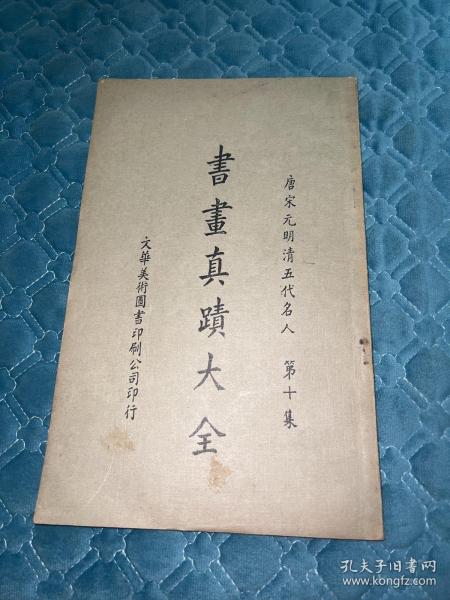 唐宋元明清五代名人 第十集
書畫真蹟大全
文華美術圖書印刷公司印行
孔夫子旧书网
www.kongfz.com